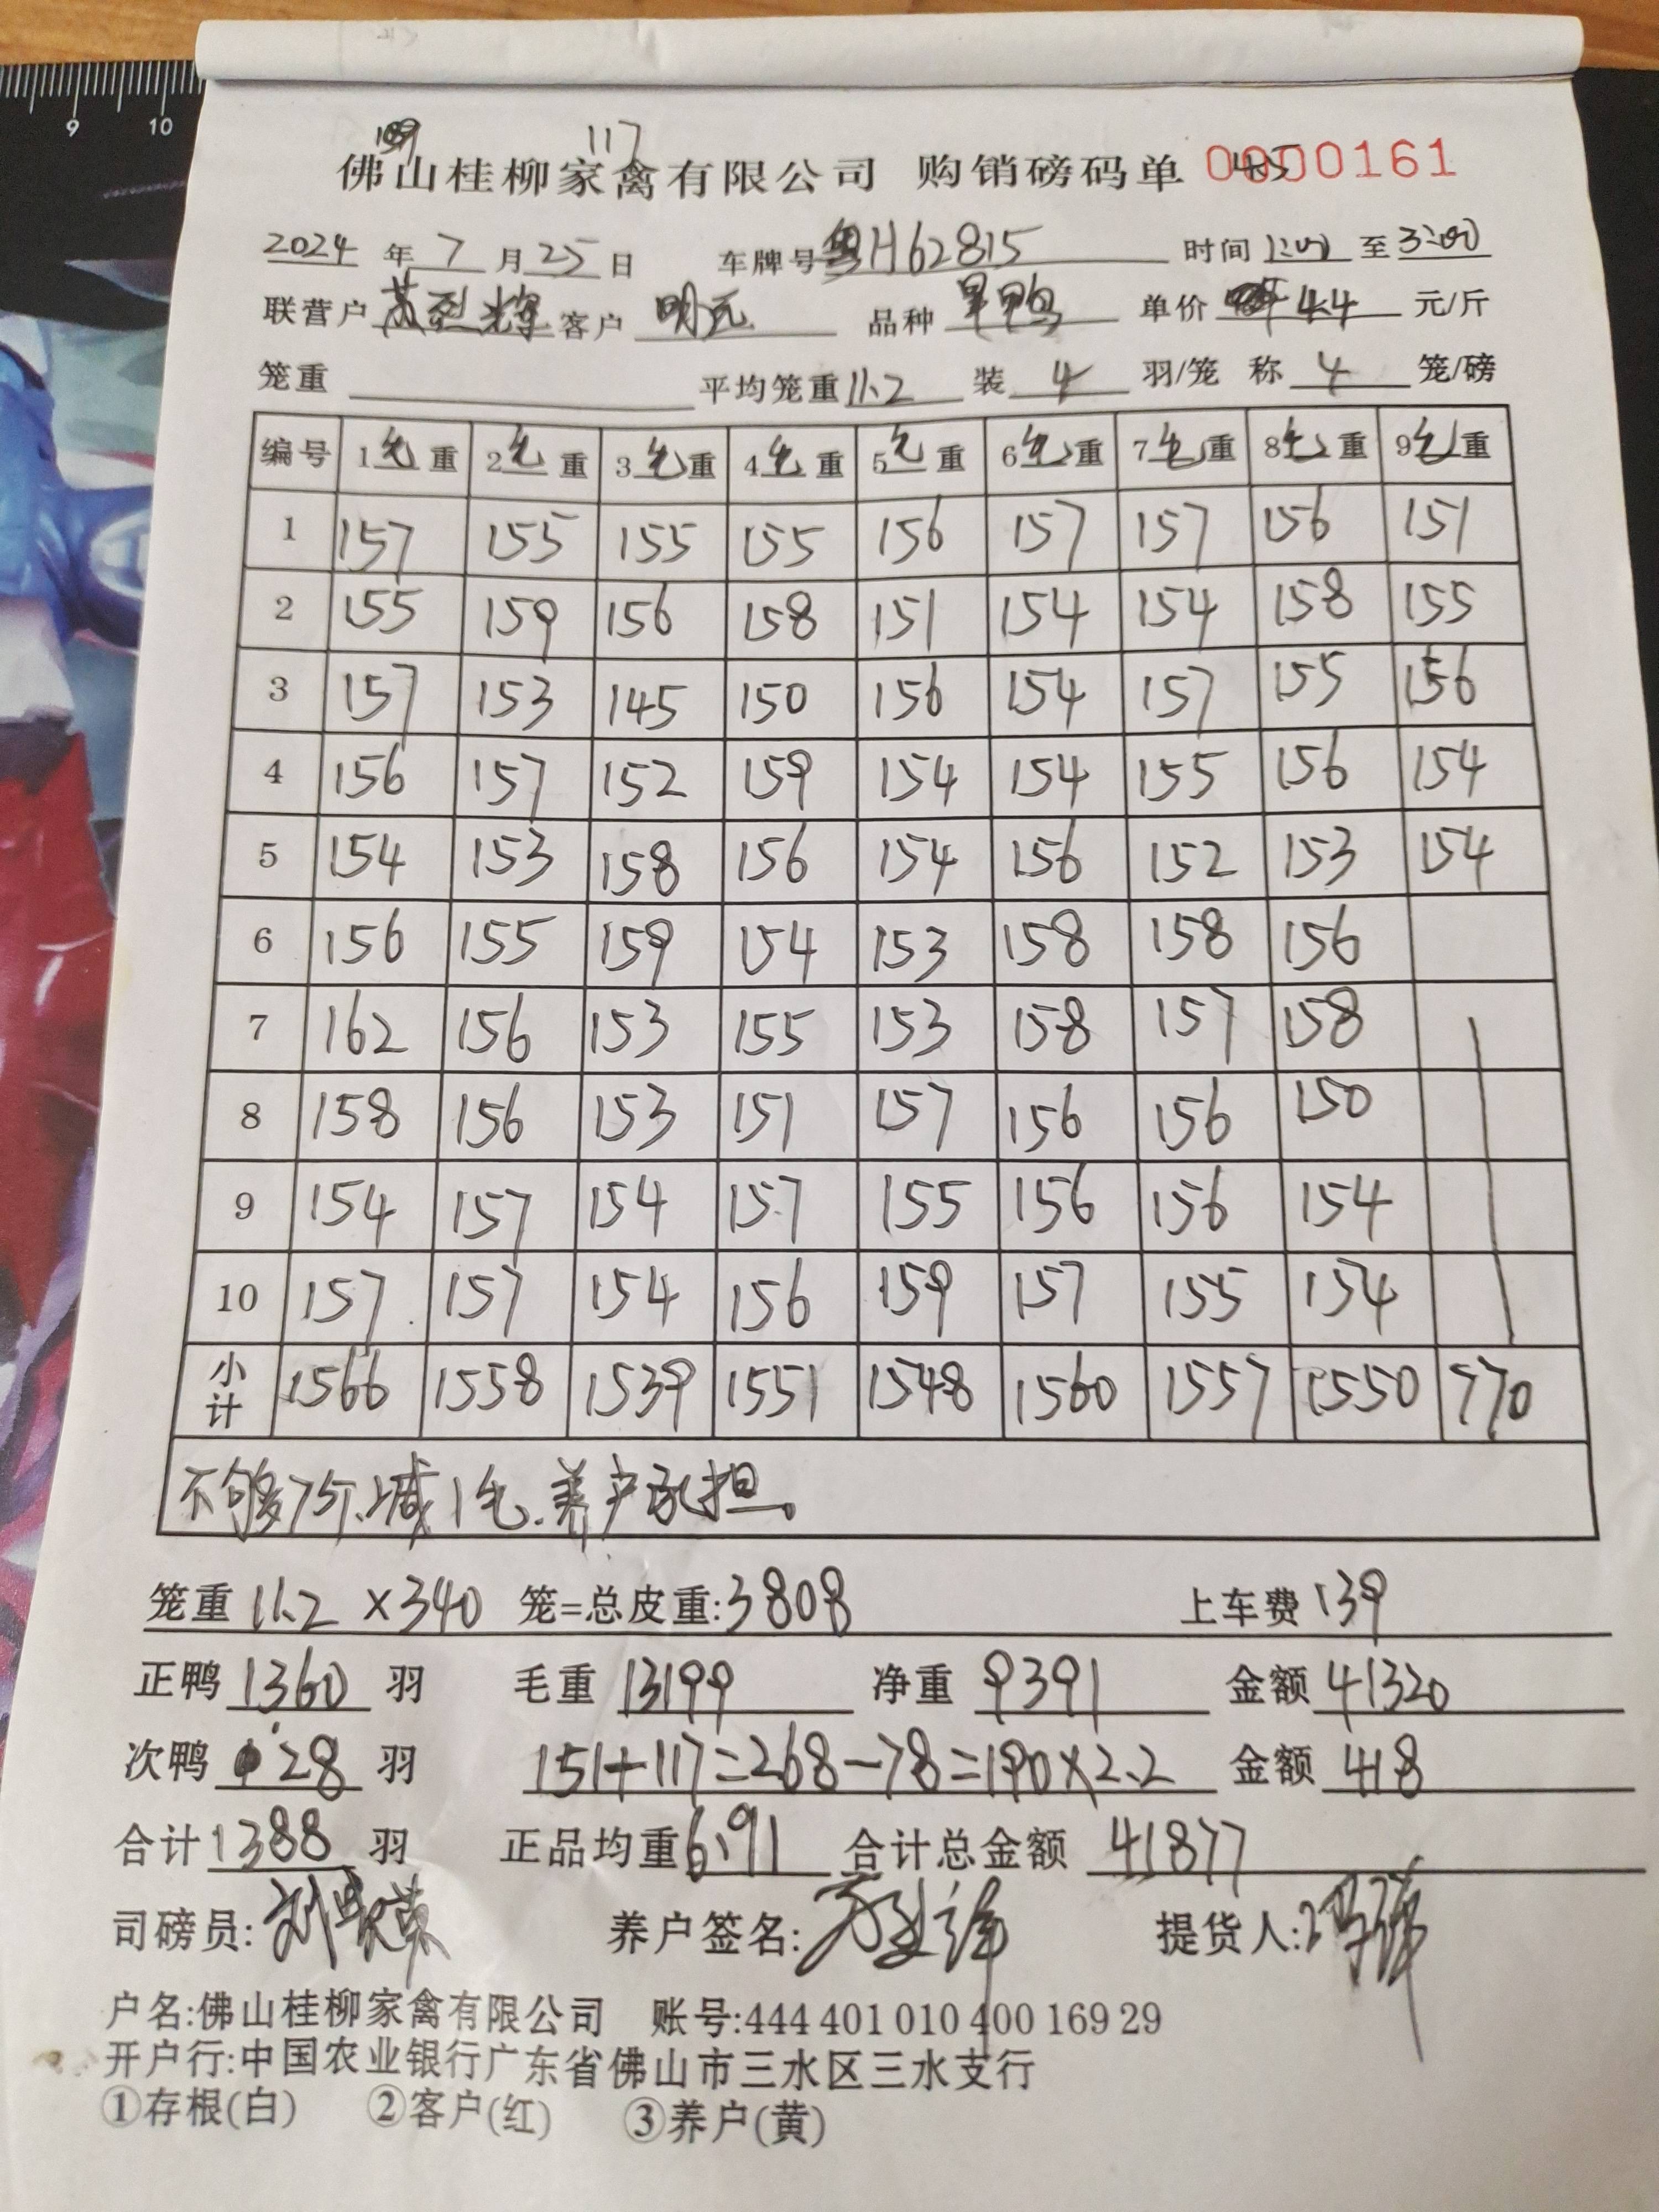 9 10
117
佛山桂柳家禽有限公司 购销磅码单 0000161
2024 年 7 月 25 日 车牌号 粤H62815 时间 1:00 至 3:00
联营户 苏烈辉 客户 明元 品种 旱鸭 单价 4.4 元/斤
笼重 平均笼重 11.2 装 4 羽/笼 称 4 笼/磅
编号 1毛重 2毛重 3毛重 4毛重 5毛重 6毛重 7毛重 8毛重 9毛重
1 157 155 155 155 156 157 157 156 151
2 155 159 156 158 151 154 154 158 155
3 157 153 145 150 156 154 157 155 156
4 156 157 152 159 154 154 155 156 154
5 154 153 158 156 154 156 152 153 154
6 156 155 159 154 153 158 158 156
7 162 156 153 155 153 158 157 158
8 158 156 153 151 157 156 156 150
9 154 157 154 157 155 156 156 154
10 157 157 154 156 159 157 155 154
小计 1566 1558 1539 1551 1548 1560 1557 1550 770
不够7斤、减1毛.养户承担。
笼重 11.2 ×340 笼=总皮重:3808 上车费 139
正鸭 1360 羽 毛重 13199 净重 9391 金额 41320
次鸭 28 羽 151+117=268-78=190×2.2 金额 418
合计 1388 羽 正品均重 6.91 合计总金额 41877
司磅员: 养户签名: 提货人:
户名:佛山桂柳家禽有限公司 账号:444 401 010 400 169 29
开户行:中国农业银行广东省佛山市三水区三水支行
①存根(白) ②客户(红) ③养户(黄)